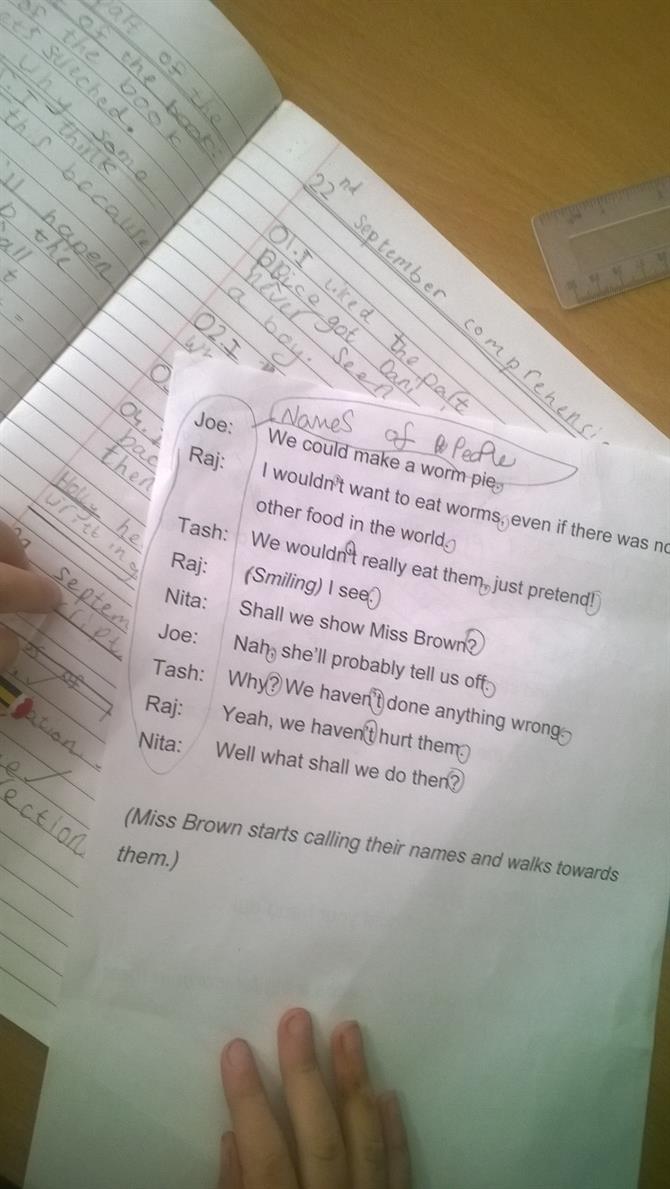 part of the
of the book:
of the book
ets suched.
why some
I think
this because
happen
the
all
t
22nd September comprehensi
Q1. I liked the part
never got Dani
seen
a boy.
Q2. I
Q4.
bac
then
Holly he
writting
Septem
script
ection
Names of People
Joe: We could make a worm pie.
Raj: I wouldn't want to eat worms, even if there was no
other food in the world.
Tash: We wouldn't really eat them, just pretend!
Raj: (Smiling) I see.
Nita: Shall we show Miss Brown?
Joe: Nah, she'll probably tell us off.
Tash: Why? We haven't done anything wrong.
Raj: Yeah, we haven't hurt them.
Nita: Well what shall we do then?
(Miss Brown starts calling their names and walks towards
them.)